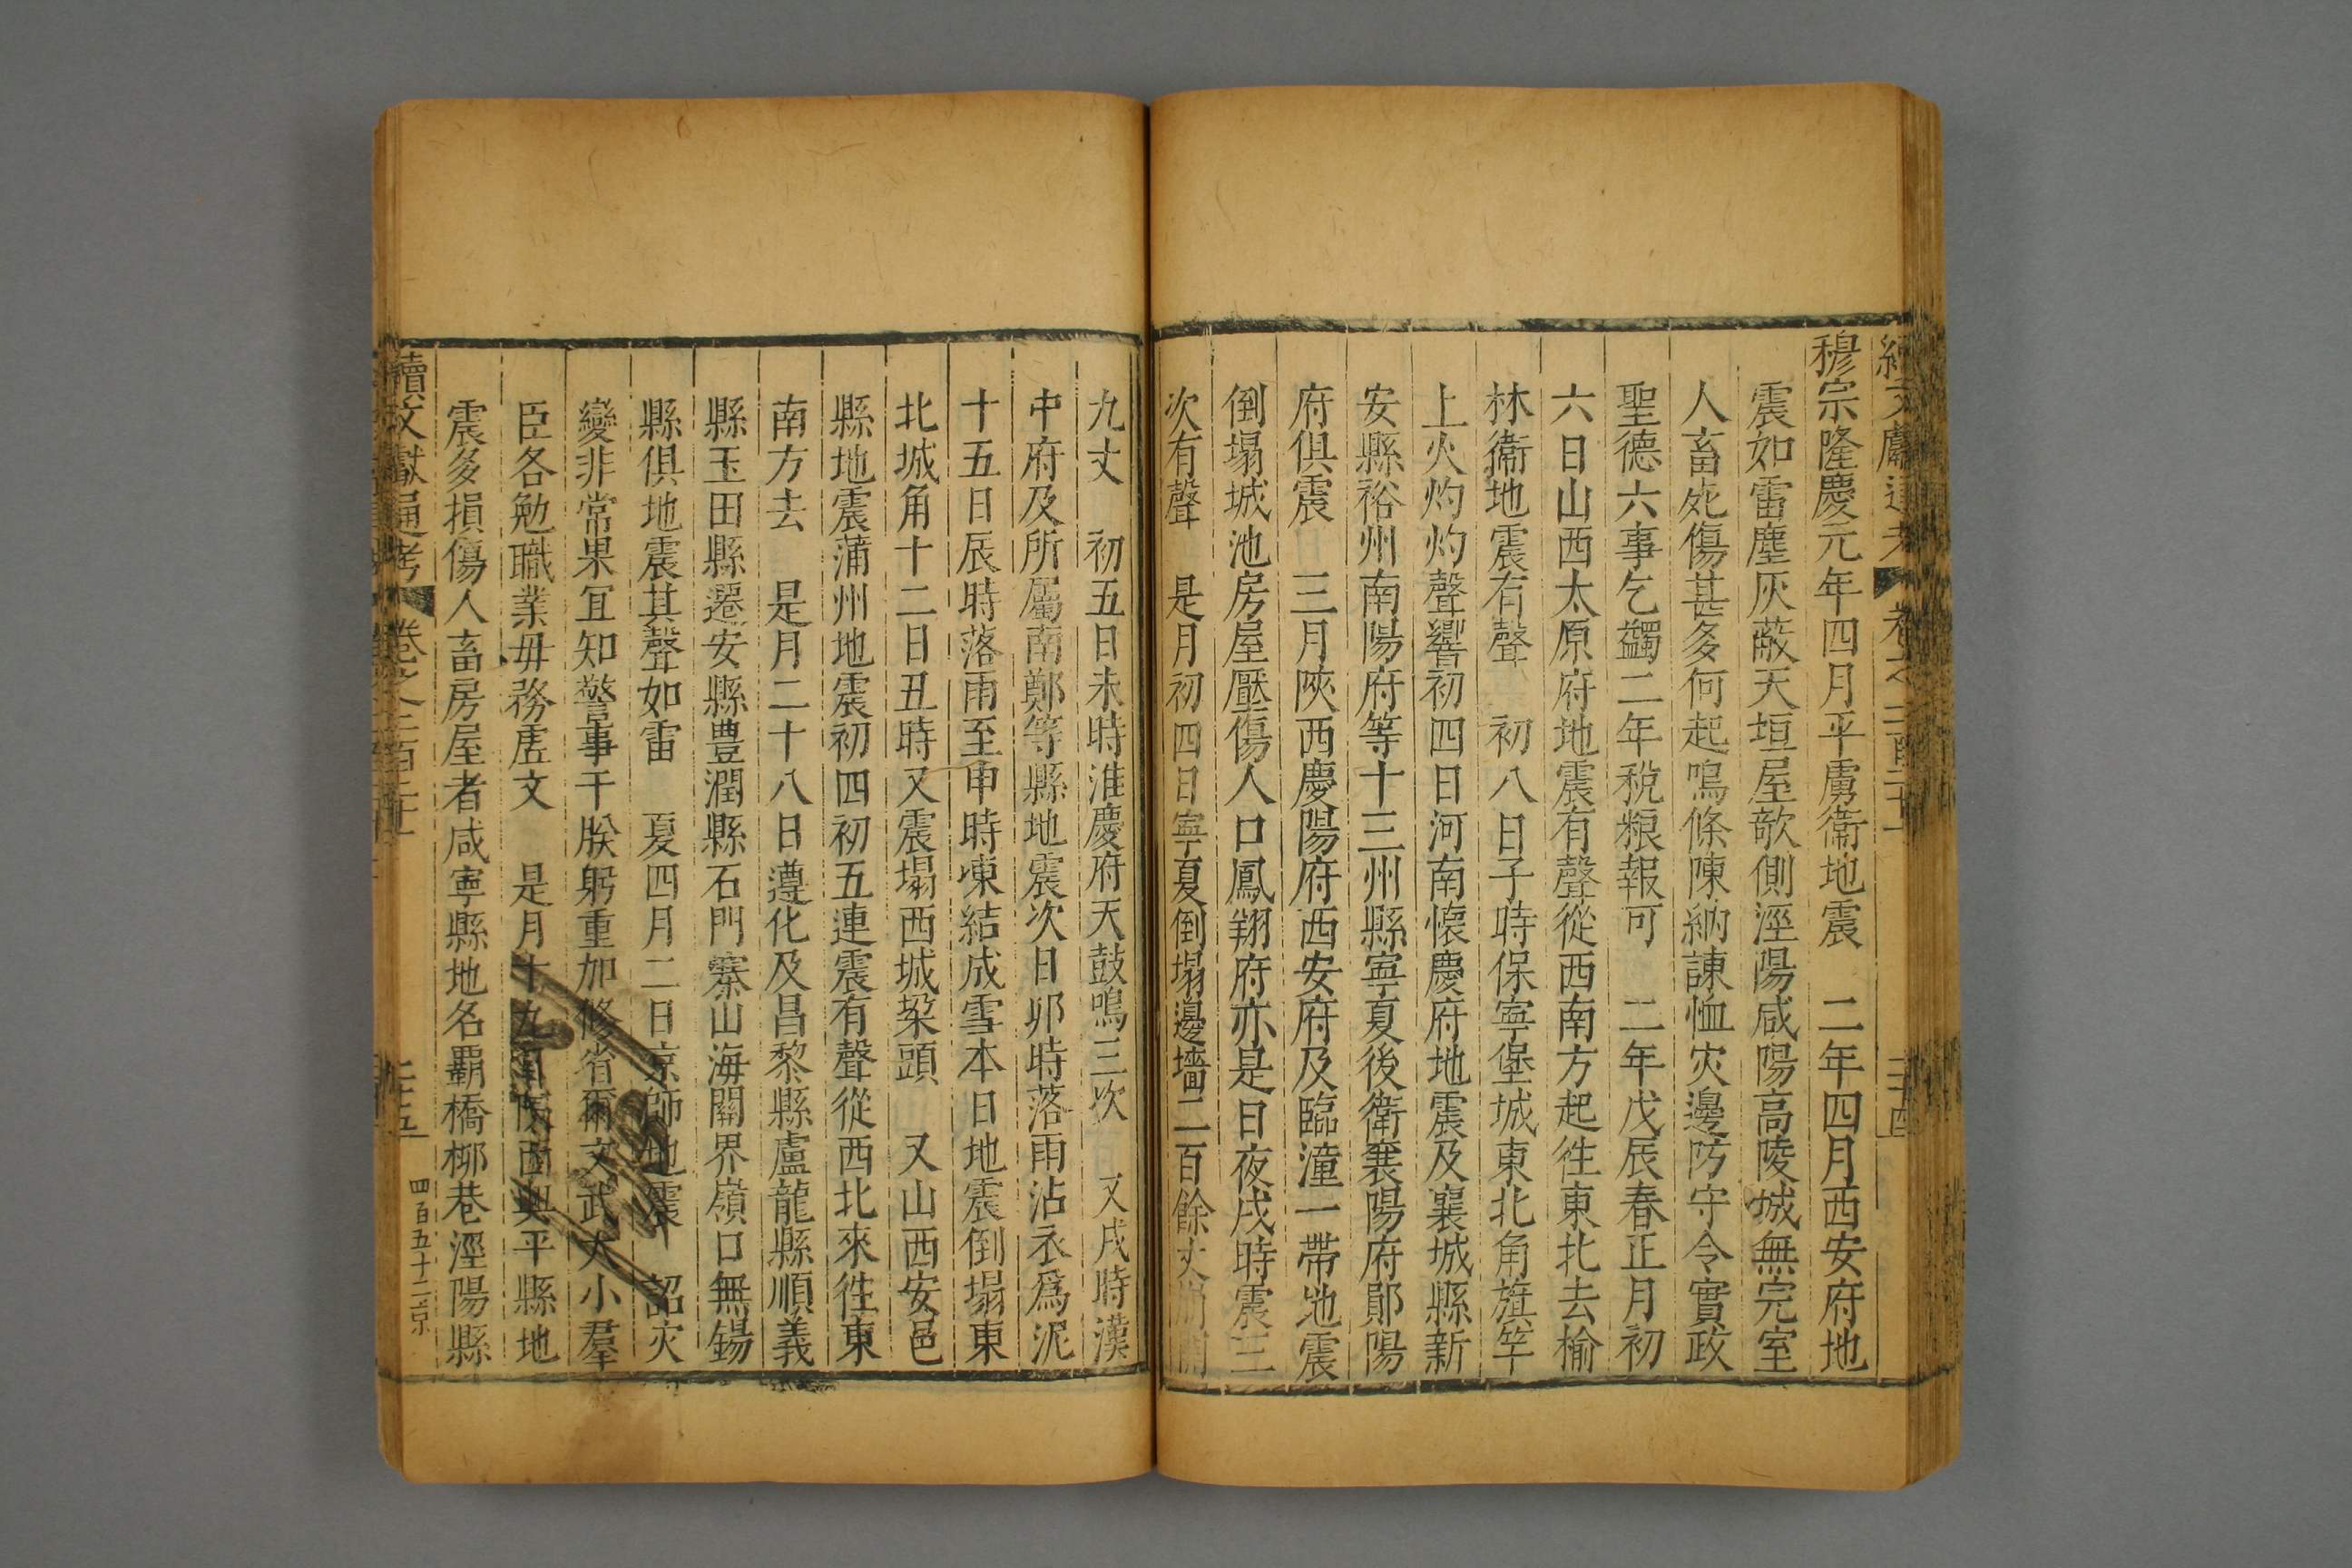 穆宗隆慶元年四月平虜衛地震　二年四月西安府地
震如雷塵灰蔽天垣屋欹側涇陽咸陽高陵城無完室
人畜死傷甚多何起鳴條陳納諫恤灾邊防守令實政
聖德六事乞蠲二年稅粮報可　二年戊辰春正月初
六日山西太原府地震有聲從西南方起徃東北去榆
林衛地震有聲　初八日子時保寧堡城東北角旗竿
上火灼灼聲響初四日河南懷慶府地震及襄城縣新
安縣裕州南陽府等十三州縣寧夏後衛襄陽府鄖陽
府俱震　三月陝西慶陽府西安府及臨潼一帶地震
倒塌城池房屋壓傷人口鳳翔府亦是日夜戌時震三
次有聲　是月初四日寧夏倒塌邊墻二百餘丈
九丈　初五日未時淮慶府天鼓鳴三次　又戌時漢
中府及所屬南鄭等縣地震次日卯時落雨沾衣爲泥
十五日辰時落雨至申時凍結成雪本日地震倒塌東
北城角十二日丑時又震塌西城梁頭　又山西安邑
縣地震蒲州地震初四初五連震有聲從西北來徃東
南方去　是月二十八日遵化及昌黎縣盧龍縣順義
縣玉田縣遷安縣豊潤縣石門寨山海關界嶺口無錫
縣俱地震其聲如雷　夏四月二日京師地震　詔灾
變非常果冝知警事干朕躬重加修省爾文武大小羣
臣各勉職業毋務虛文　是月十九日陝西興平縣地
震多損傷人畜房屋者咸寧縣地名覇橋柳巷涇陽縣
續文獻通考　卷之二百二十一　二十五　四百五十二　京